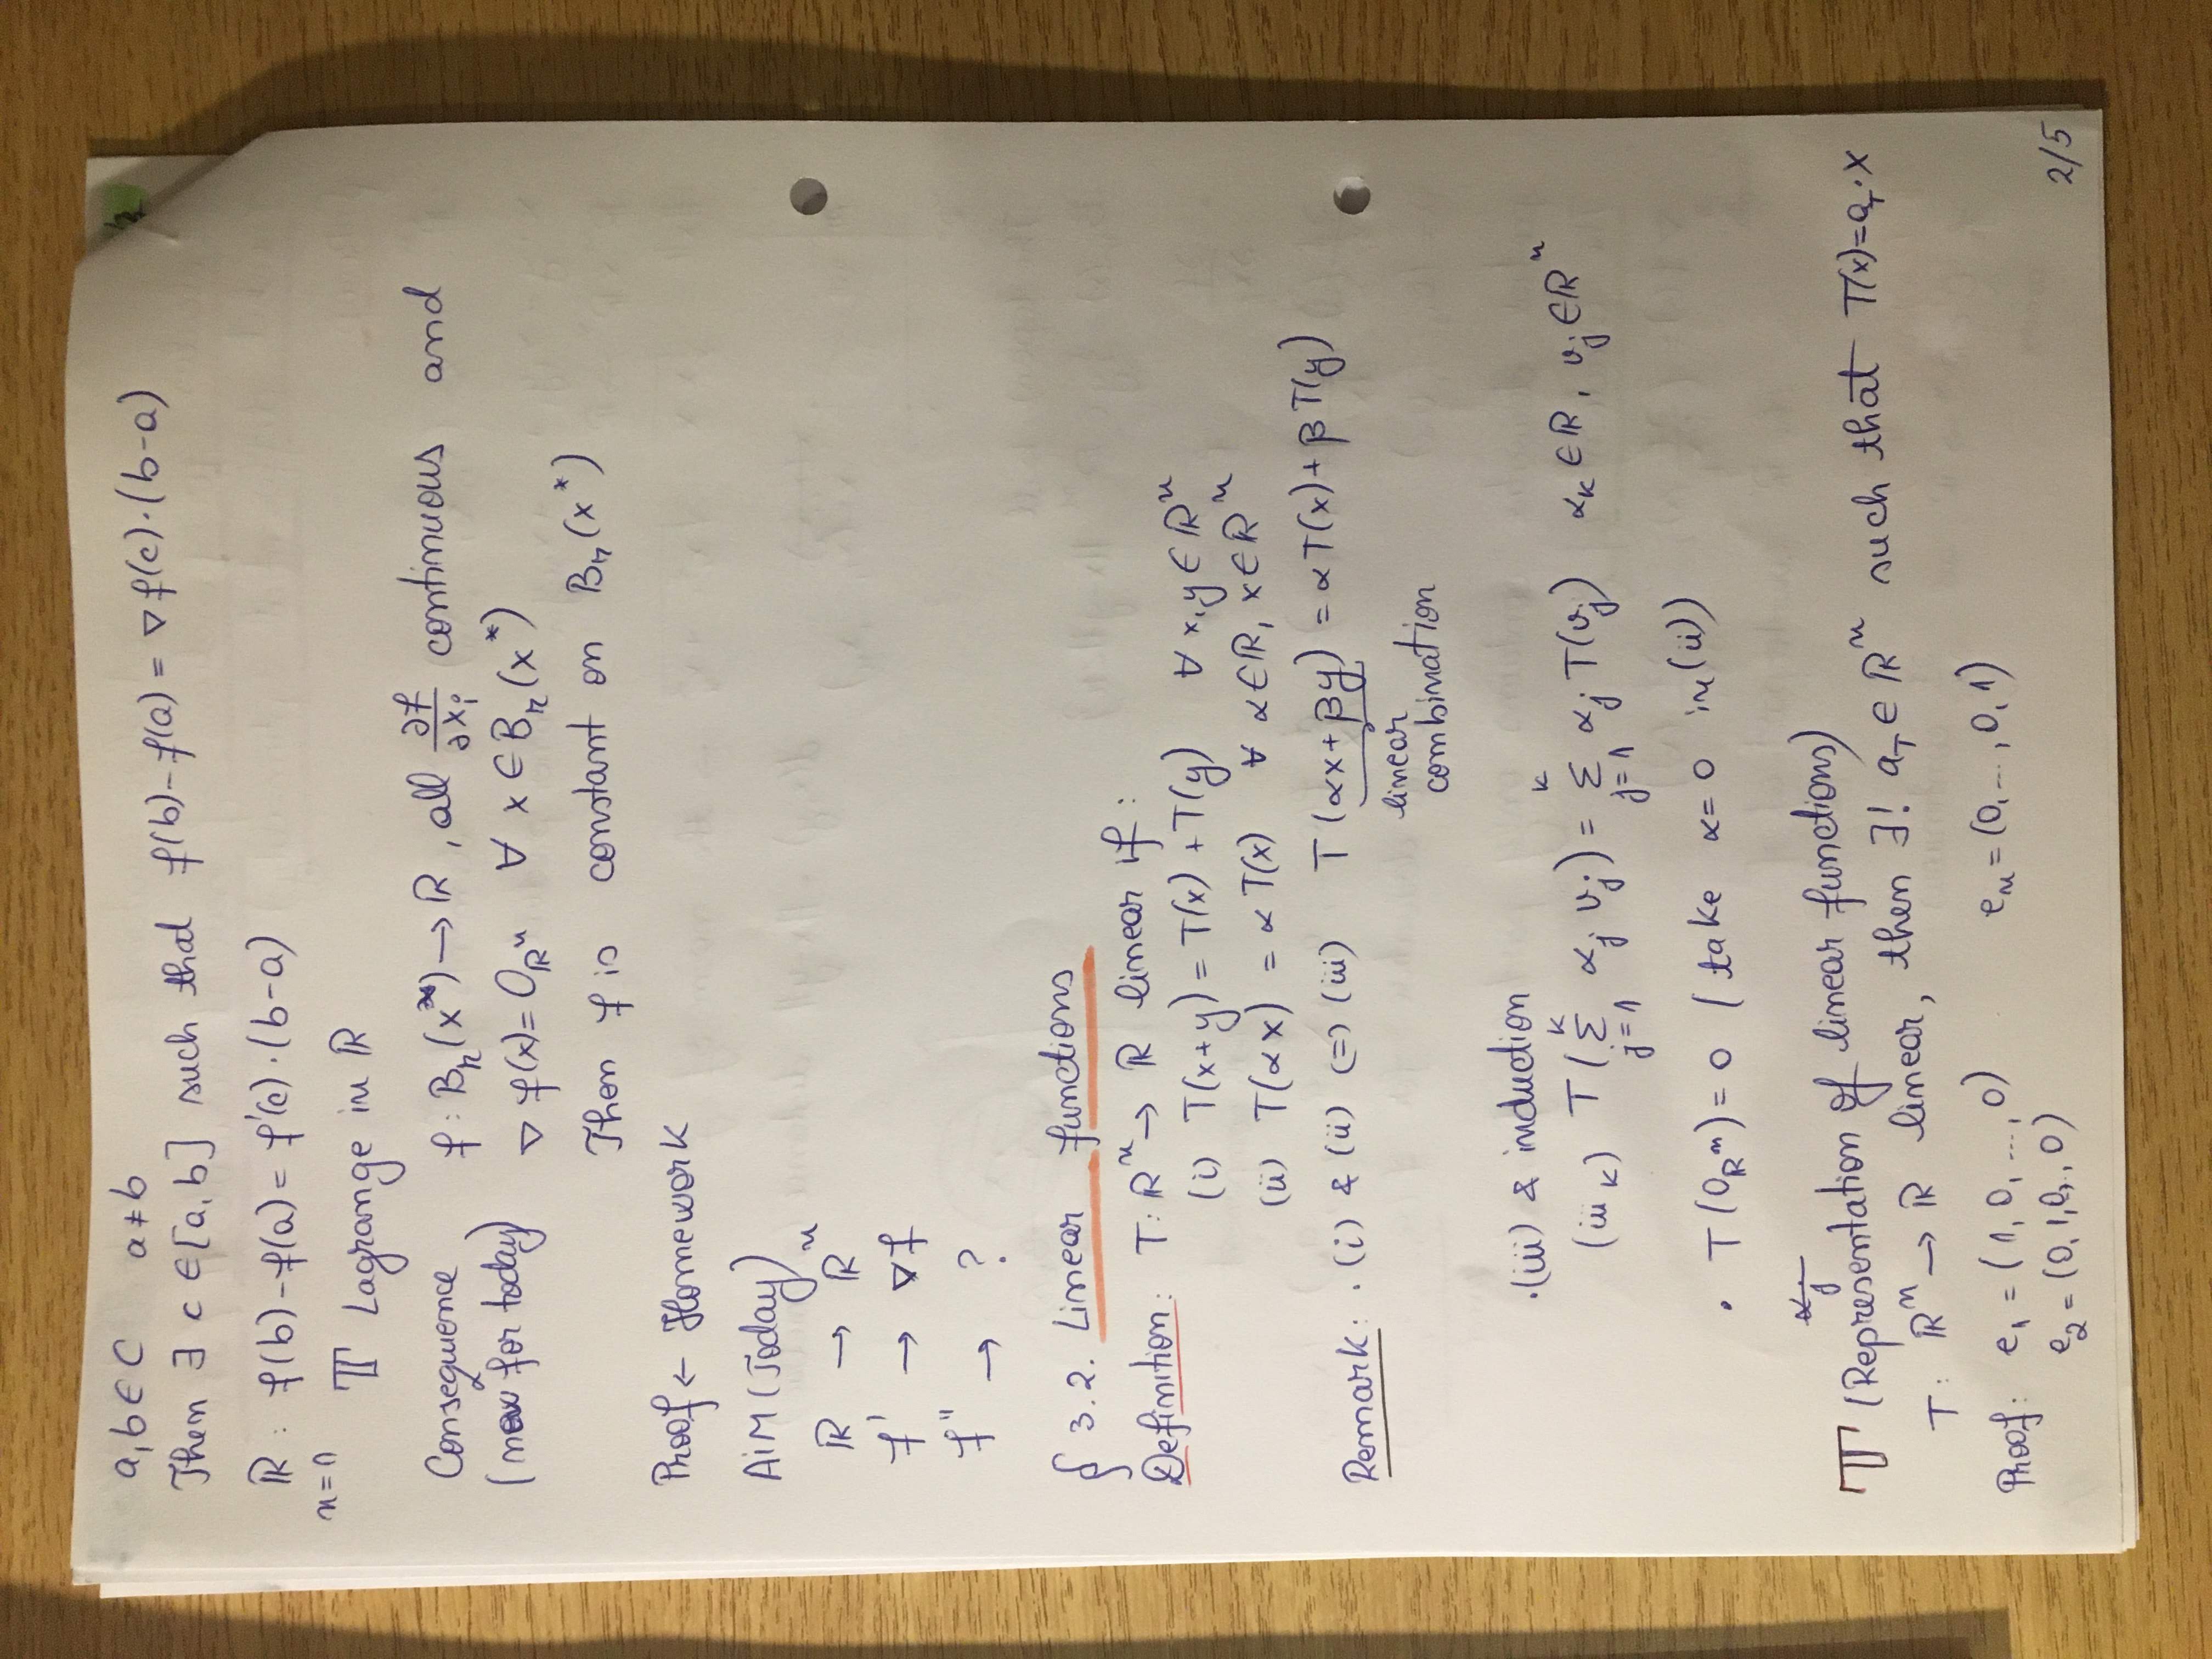 a,b∈C a≠b
Then ∃ c∈[a,b] such that f(b)-f(a) = ∇f(c)·(b-a)
ℝ: f(b)-f(a) = f'(c)·(b-a)
n=1
𝕋 Lagrange in ℝ
Consequence f: Bᵣ(x*) → ℝ, all ∂f/∂xᵢ continuous and
(new for today) ∇f(x) = 0_ℝⁿ ∀ x∈Bᵣ(x*)
Then f is constant on Bᵣ(x*)
Proof ← Homework
AiM (Today)
ℝ → ℝⁿ
f' → ∇f
f'' → ?
§ 3.2. Linear functions
Definition: T: ℝⁿ → ℝ linear if:
(i) T(x+y) = T(x) + T(y) ∀ x,y∈ℝⁿ
(ii) T(αx) = αT(x) ∀ α∈ℝ, x∈ℝⁿ
Remark: ·(i) & (ii) (=) (iii) T(αx+βy) = αT(x)+βT(y)
linear
combination
·(iii) & induction
(iii ₖ) T(∑_{j=1}^{k} αⱼ vⱼ) = ∑_{j=1}^{k} αⱼ T(vⱼ) αₖ∈ℝ, vⱼ∈ℝⁿ
· T(0_ℝⁿ) = 0 (take α=0 in (ii))
αⱼ
𝕋 (Representation of linear functions)
T: ℝⁿ → ℝ linear, then ∃! a_T∈ℝⁿ such that T(x)=a_T·x
Proof: e₁ = (1,0,...,0) eₙ = (0,...,0,1)
e₂ = (0,1,0,..,0)
2/5